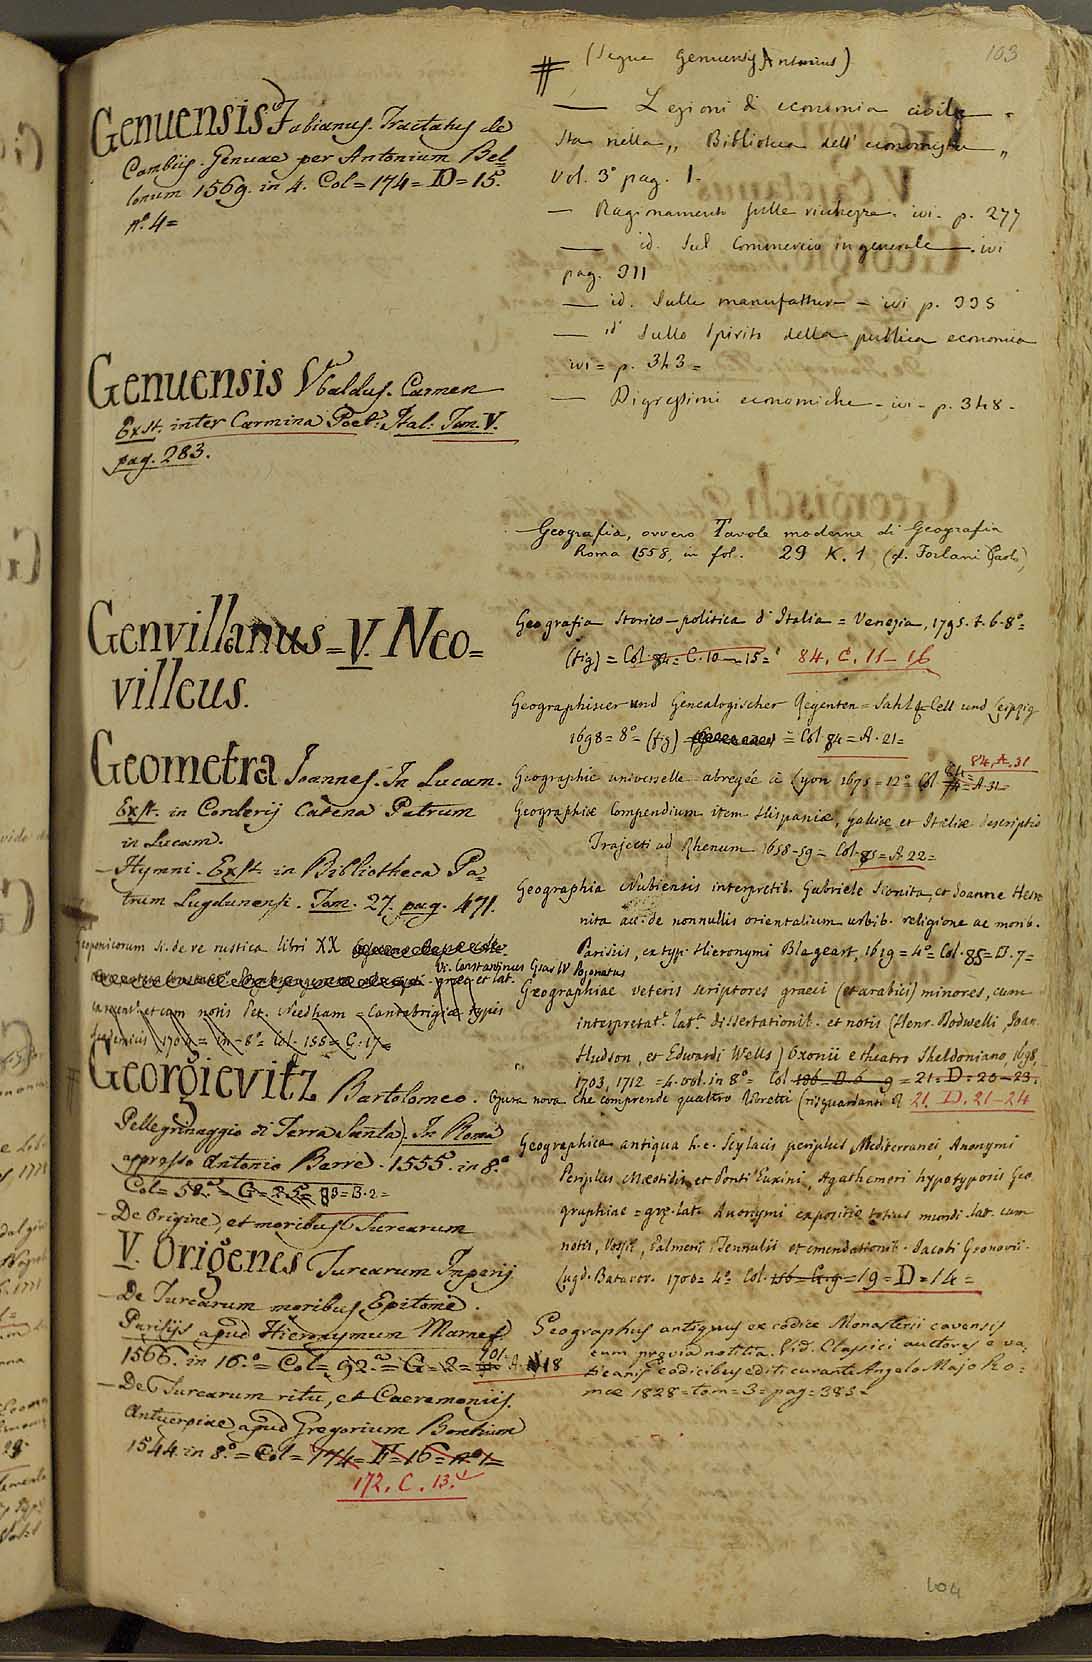 103
Genuensis Fabianus. Tractatus de
Cambiis. Genuae per Antonium Bel=
lonum 1569. in 4. Col = 174 = D = 15.
n.º 4 =
Genuensis Vbaldus. Carmen
Exst. inter Carmina Poet: Ital: Tom. V.
pag. 283.
Genvillanus = V. Neo=
villeus.
Geometra Joannes. In Lucam.
Exst. in Corderij Catena Patrum
in Lucam.
— Hymni. Exst. in Bibliotheca Pa=
trum Lugdunensi. Tom. 27. pag. 471.
Geoponicorum si. de re rustica libri XX
Vi. Constantinus Cesar IV Pogonatus
græc. et lat.
notis Pet. Needham = Cantabrigiæ typis
1704 = in-8º = Col. 155 = G. 17 =
Georgievitz Bartolomeo. Opera nova che comprende quattro libretti (risguardanti il
Pellegrinaggio di Terra Santa). In Roma
appresso Antonio Barre. 1555. in 8.º
Col = 58.º = G = 25 = 93 = B. 2 =
— De Origine, et moribus Turcarum
V. Origenes Turcarum Imperij
— De Turcarum moribus Epitome.
Parisijs apud Hieronymum Marnef
1566. in 16.º = Col = 92.º = G = 2 = 101. A. 18
— De Turcarum ritu, et Caeremoniis.
Antuerpiae apud Gregorium Bontium
1544. in 8.º = Col = 174 = F = 16 = n.º 1 =
172. C. 13.
# (Segue Genuensis Antonius)
— Lezioni di economia civile.
Sta nella „ Biblioteca dell' economista „
vol. 3º pag. 1.
— Ragionamento sulle richezze. ivi. p. 277
— id. Sul Commercio in generale. ivi
pag. 311
— id. Sulle manufatture — ivi p. 335
— id Sullo Spirito della publica economia
ivi = p. 343 =
— Digressioni economiche - ivi - p. 348 -
Geografia, ovvero Tavole moderne di Geografia
Roma 1558, in fol. 29 K. 1 (cf. Forlani Paolo)
Geografia storico-politica d'Italia = Venezia, 1795. t. 6. 8º =
(fig) = Col. 84 = C. 10 — 15 = 84. C. 11 — 16
Geographischer und Genealogischer Regenten = Sahl = Cell und Leipzig
1698 = 8º = (fig) = Col. 84 = A. 21 =
84. A. 31
Geographie universelle abregée à Lyon 1675 = 12º Col 84 = A. 31 =
Geographiæ Compendium item Hispaniæ, Galliæ et Italiæ descriptio
Trajecti ad Rhenum 1658-59 = Col. 85 = A. 22 =
Geographia Nubiensis interpretib. Gabriele Sionita, et Joanne Hesro=
nita acc. de nonnullis orientalium urbib. religione ac morib.
Parisiis, ex typ. Hieronymi Blageart, 1619 = 4º = Col. 85 = D. 7 =
Geographiae veteris scriptores graeci (et arabici) minores, cum
interpretat. lat. dissertationib. et notis (Henr. Dodwelli, Joan.
Hudson, et Edwardi Wells) Oxonii e theatro Sheldoniano, 1698,
1703, 1712 = 4. vol. in 8º = Col 186. D. 6 — 9 = 21 = D = 20 — 23.
21. D. 21 — 24
Geographica antiqua h.e. Scylacis periplus Mediterranei, Anonymi
Periplus Mæotidis et Ponti Euxini, Agathemeri hypotyposis Geo
graphiae = græ. lat. Anonymi expositio totius mundi lat. cum
notis, Vossii, Palmerii, Tennulii et emendationib. Jacobi Gronovii.
Lugd. Batavor. 1700 = 4º Col. 186 = G. 9 = 19 = D = 14 =
Geographus antiquus ex codice Monasterii cavensis
cum prævia notitia. Vid. Classici auctores e va=
ticanis codicibus editi curante Angelo Majo Ro=
mæ 1828 = tom = 3 = pag = 385 =
104